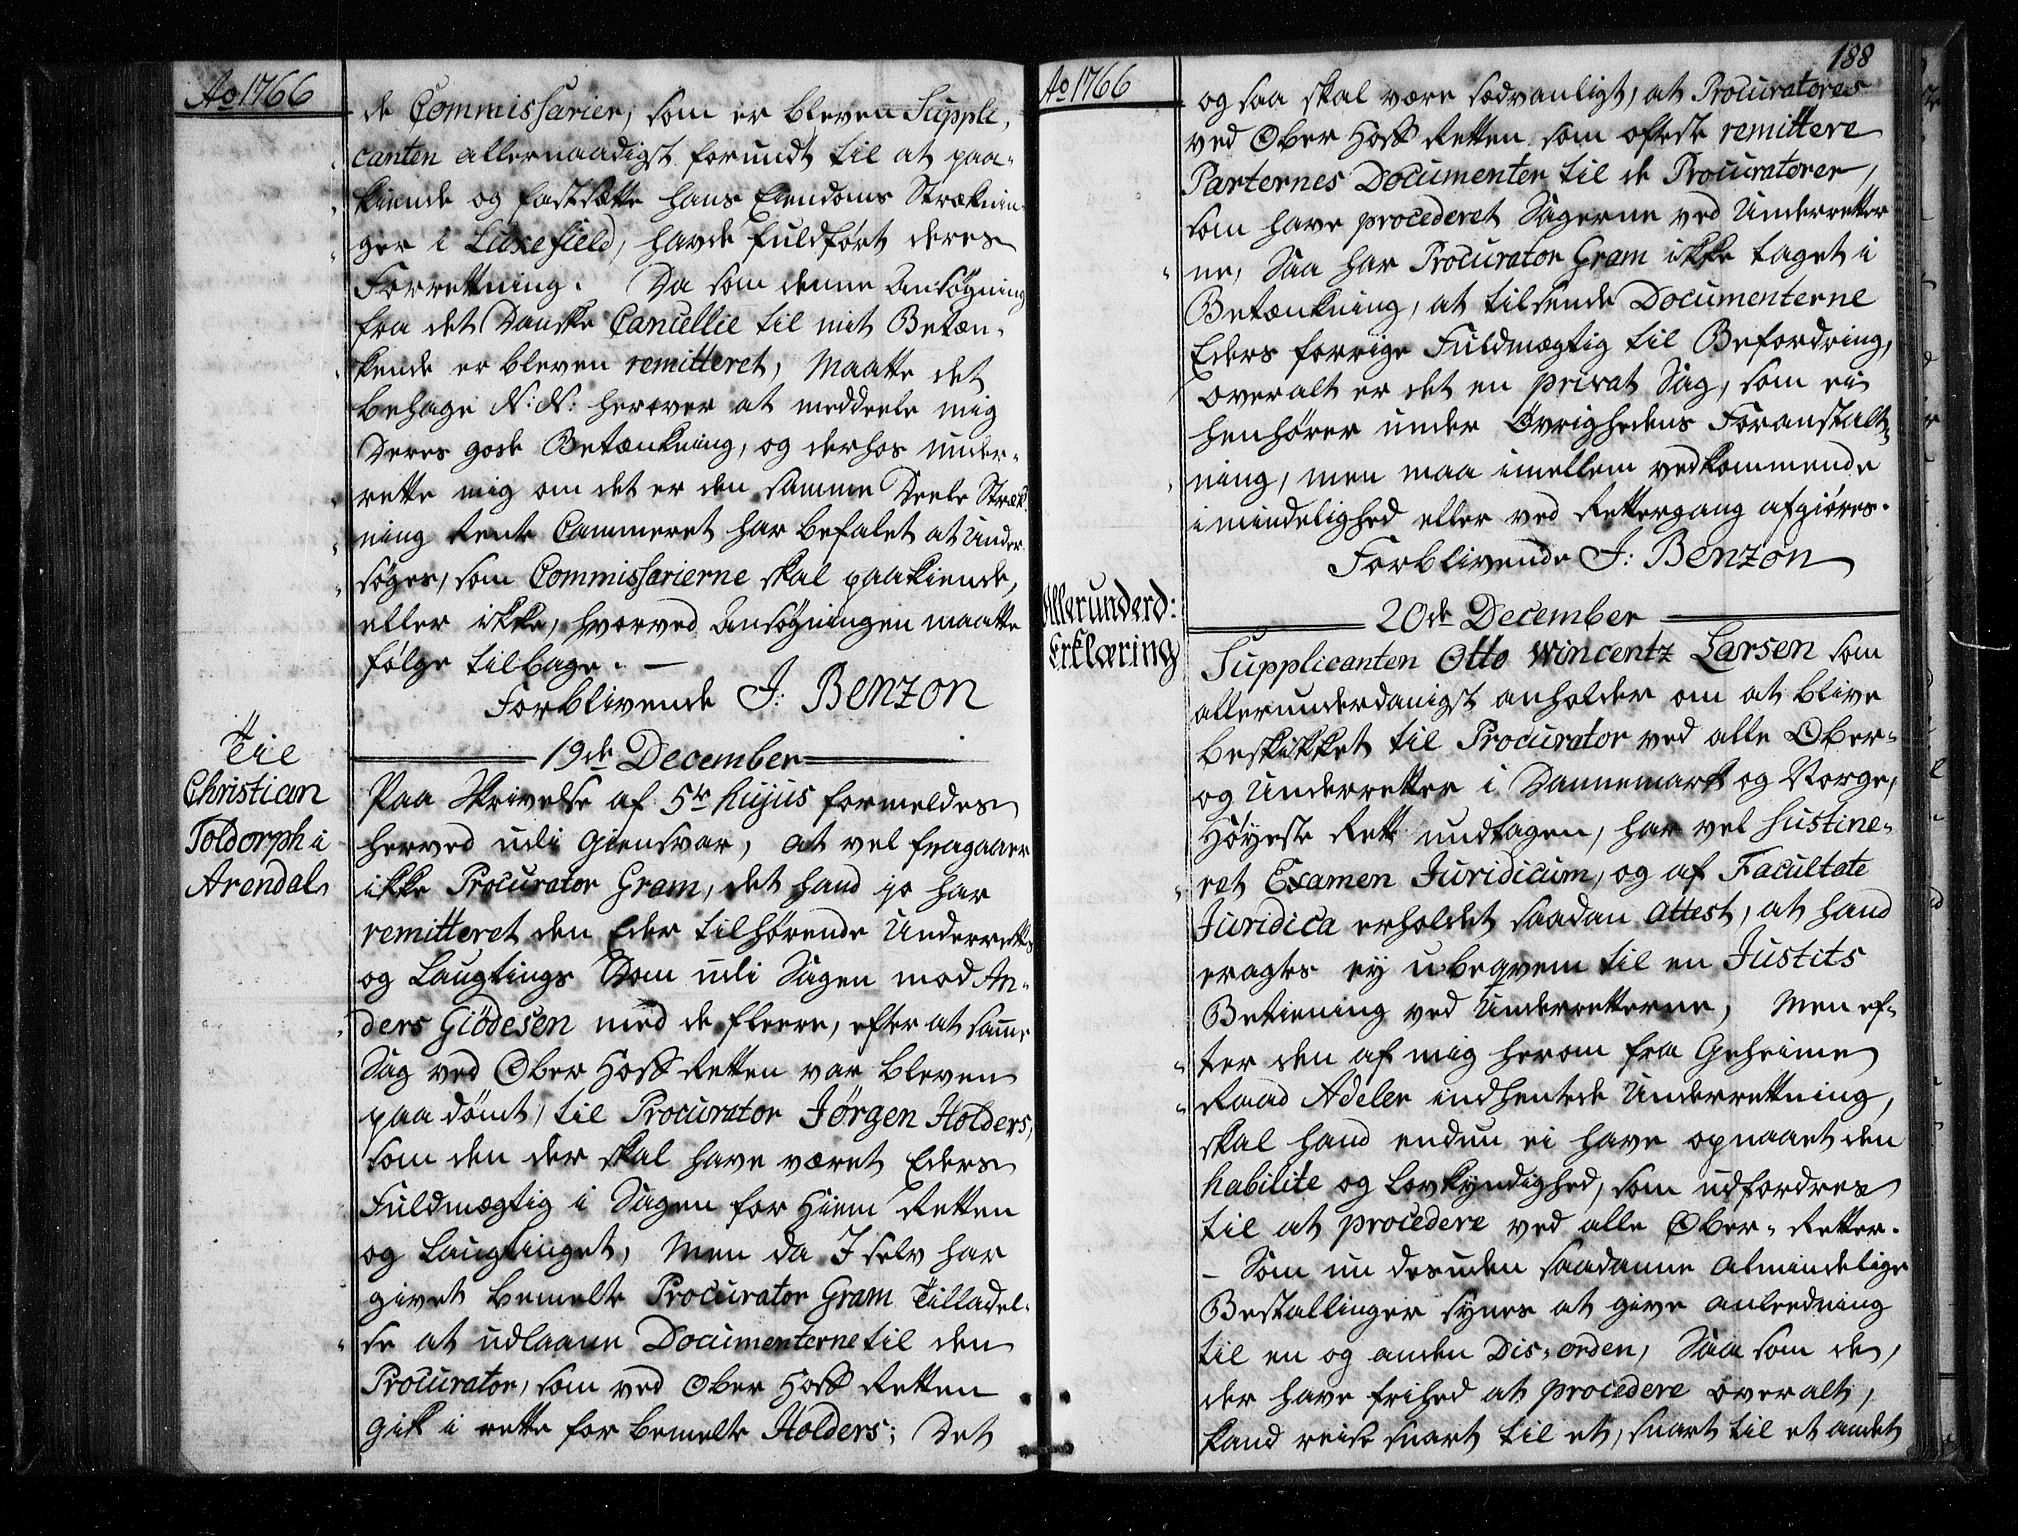 Ao 1766
de Commissarier, som er bleven Suppli,
canten allernaadigst forundt til at paa-
kiende og fastsætte hans Eiendoms Stræknin-
ger i Luxefield, havde fuldført deres
Forretning. Da som denne Ansøgning
fra det Danske Cancellie til mit Betæn-
kende er bleven remitteret, Maatte det
behage N: N: herover at meddeele mig
Deres gode Betænkning, og derhos under-
rette mig om det er den samme Deele Stræk-
ning Rente Cammeret har befalet at under-
søges, som Commissarierne skal paakiende,
eller ikke, hvorved Ansøgningen maatte
følge tilbage. —
Forblivende J: Benzon
19de December
Til
Christian
Toldorph i
Arendal
Paa Skrivelse af 5te hujus formeldes
herved udi Giensvar, at vel fragaaer
ikke Procurator Gram, det hand jo har
remitteret den Eder tilhørende Underretts
og Laugtings Dom udi Sagen mod An-
ders Giödesen med de fleere, efter at samme
Sag ved Ober Hoff Retten var bleven
paadömt, til Procurator Jörgen Holders,
som den der skal have været Eders
Fuldmægtig i Sagen for Hiem Retten
og Laugtinget, Men da I selv har
givet bemelte Procurator Gram Tilladel-
se at udlaane Documenterne til den
Procurator, som ved Ober Hoff Retten
gik i rette for bemelte Holders; Det
188
Ao 1766
og saa skal være sædvanligt, at Procuratores
ved Ober Hoff Retten som oftest remittere
Parternes Documenter til de Procuratorer,
som have procederet Sagerne ved Underretter
ne, Saa har Procurator Gram ikke taget i
Betænkning, at tilsende Documenterne
Eders forrige Fuldmægtig til Befordring,
overalt er det en privat Sag, som ei
henhører under Øvrighedens Foranstalt-
ning, men maa imellem vedkommende
i mindelighed eller ved Rettergang afgiøres.
Forblivende J: Benzon
20de December
Allerunderd:
Erklæring
Supplicanten Otto Wincentz Larsen som
allerunderdanigst anholder om at blive
beskikket til Procurator ved alle Ober-
og Underretter i Dannemark og Norge,
Høyeste Rett undtagen, har vel sustine-
ret Examen Juridicum, og af Facultate
Juridica erholdet saadan Attest, at hand
eragtes ey ubeqvem til en Justits
Betiening ved Underretterne, Men ef-
ter den af mig herom fra Geheime
Raad Adeler indhentede Underretning,
skal hand endnu ei have opnaaet den
habilite og Lovkyndighed, som udfordres
til at procedere ved alle Ober-Retter.
— Som nu desuden saadanne Almindelige
Bestallinger synes at give anleedning
til en og anden Dis-orden, Saa som de,
der have frihed at procedere overalt,
kand reise snart til et, snart til et andet